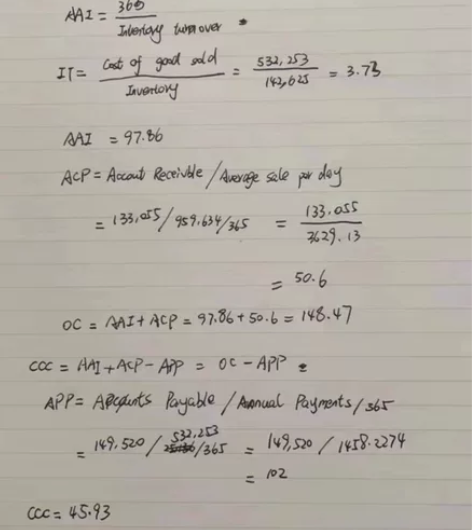 AAI = 365 / Inventory turnover
IT = Cost of good sold / Inventory = 532,253 / 142,625 = 3.73
AAI = 97.86
ACP = Account Receivble / Average sale per day
= 133,055 / 959.634/365 = 133.055 / 3629.13
= 50.6
OC = AAI + ACP = 97.86 + 50.6 = 148.47
CCC = AAI + ACP - APP = OC - APP
APP = Accounts Payable / Annual Payments / 365
= 149.520 / 532.253 /365 = 149,520 / 1458.2274
= 102
CCC = 45.93